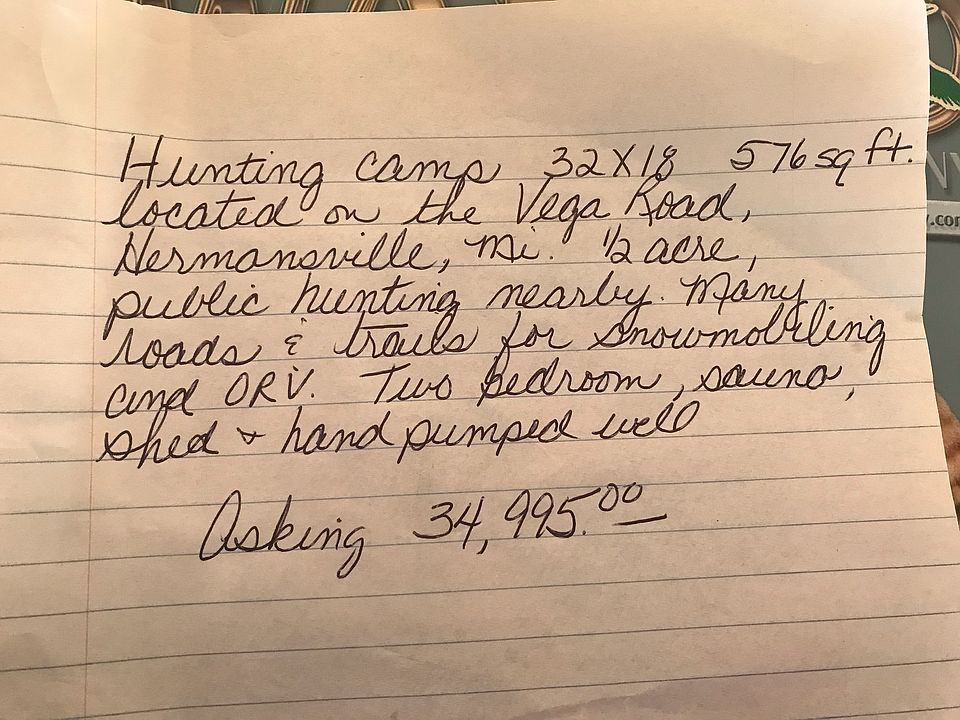 Hunting camp 32X18 576 sq ft.
located on the Vega Road,
Hermansville, Mi. 1/2 acre,
public hunting nearby. Many
roads & trails for snowmobiling
and ORV. Two bedroom, sauna,
shed + hand pumped well
Asking 34,995.00
.com